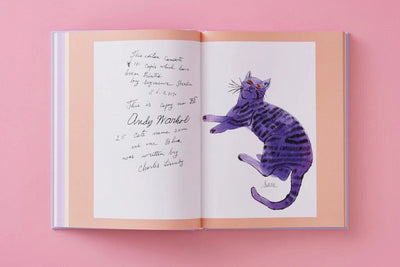 This edition consists
copies which have
been Printed
by Seymour Berlin
This is copy no
Andy Warhol
25 Cats name sam
one Blue
was written by
Charles Lisanby
Sam